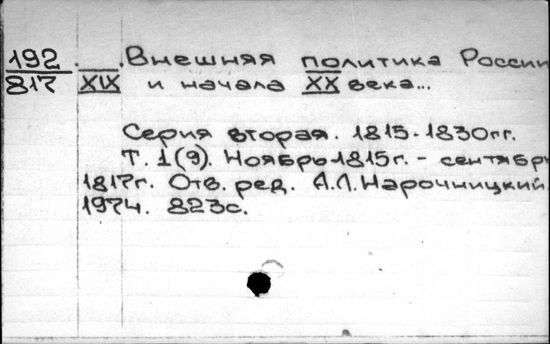 192 Внешняя политика России
817 XIX и начала XX века...
Серия вторая. 1815-1830гг.
Т. 1(9). Ноябрь 1815г. - сентябрь
1817г. Отв. ред. А.Л. Нарочницкий.
1974. 823с.